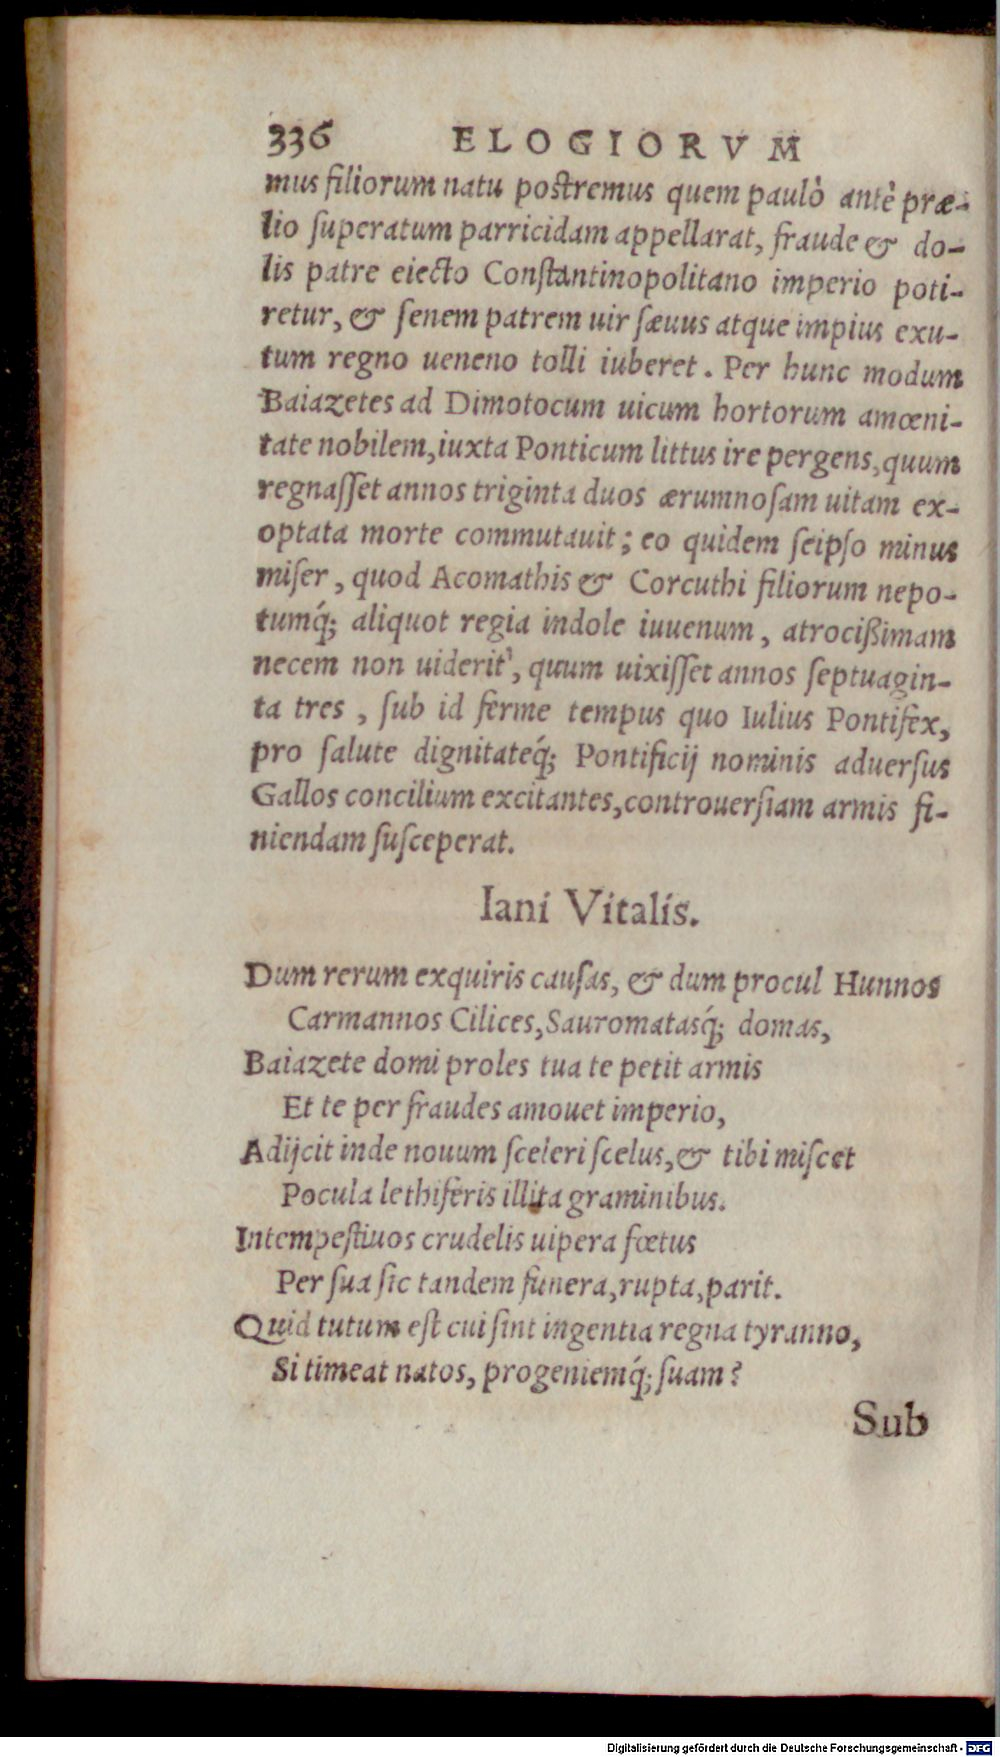 336 ELOGIORVM
mus filiorum natu postremus quem paulò antè præ-
lio superatum parricidam appellarat, fraude & do-
lis patre eiecto Constantinopolitano imperio poti-
retur, & senem patrem uir sæuus atque impius exu-
tum regno ueneno tolli iuberet. Per hunc modum
Baiazetes ad Dimotocum uicum hortorum amœni-
tate nobilem, iuxta Ponticum littus ire pergens, quum
regnasset annos triginta duos ærumnosam uitam ex-
optata morte commutauit; eo quidem seipso minus
miser, quod Acomathis & Corcuthi filiorum nepo-
tumq́; aliquot regia indole iuuenum, atrocißimam
necem non uiderit, quum uixisset annos septuagin-
ta tres, sub id ferme tempus quo Iulius Pontifex,
pro salute dignitateq́; Pontificij nominis aduersus
Gallos concilium excitantes, controuersiam armis fi-
niendam susceperat.
Iani Vitalis.
Dum rerum exquiris causas, & dum procul Hunnos
Carmannos Cilices, Sauromatasq́; domas,
Baiazete domi proles tua te petit armis
Et te per fraudes amouet imperio,
Adijcit inde nouum sceleri scelus, & tibi miscet
Pocula lethiferis illita graminibus.
Intempestiuos crudelis uipera fœtus
Per sua sic tandem funera, rupta, parit.
Quid tutum est cui sint ingentia regna tyranno,
Si timeat natos, progeniemq́; suam?
Sub
Digitalisierung gefördert durch die Deutsche Forschungsgemeinschaft - DFG